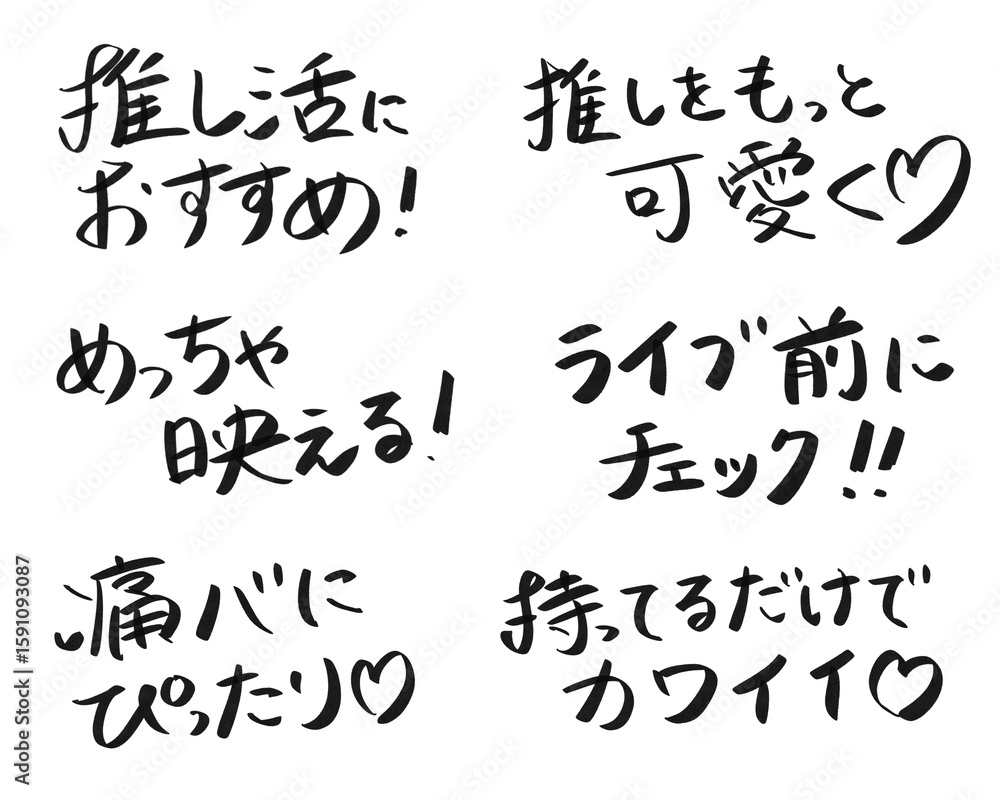 推し活に
おすすめ!
推しをもっと
可愛く♡
めっちゃ
映える!
ライブ前に
チェック!!
痛バに
ぴったり♡
持ってるだけで
カワイイ♡
Adobe Stock | #1591093087